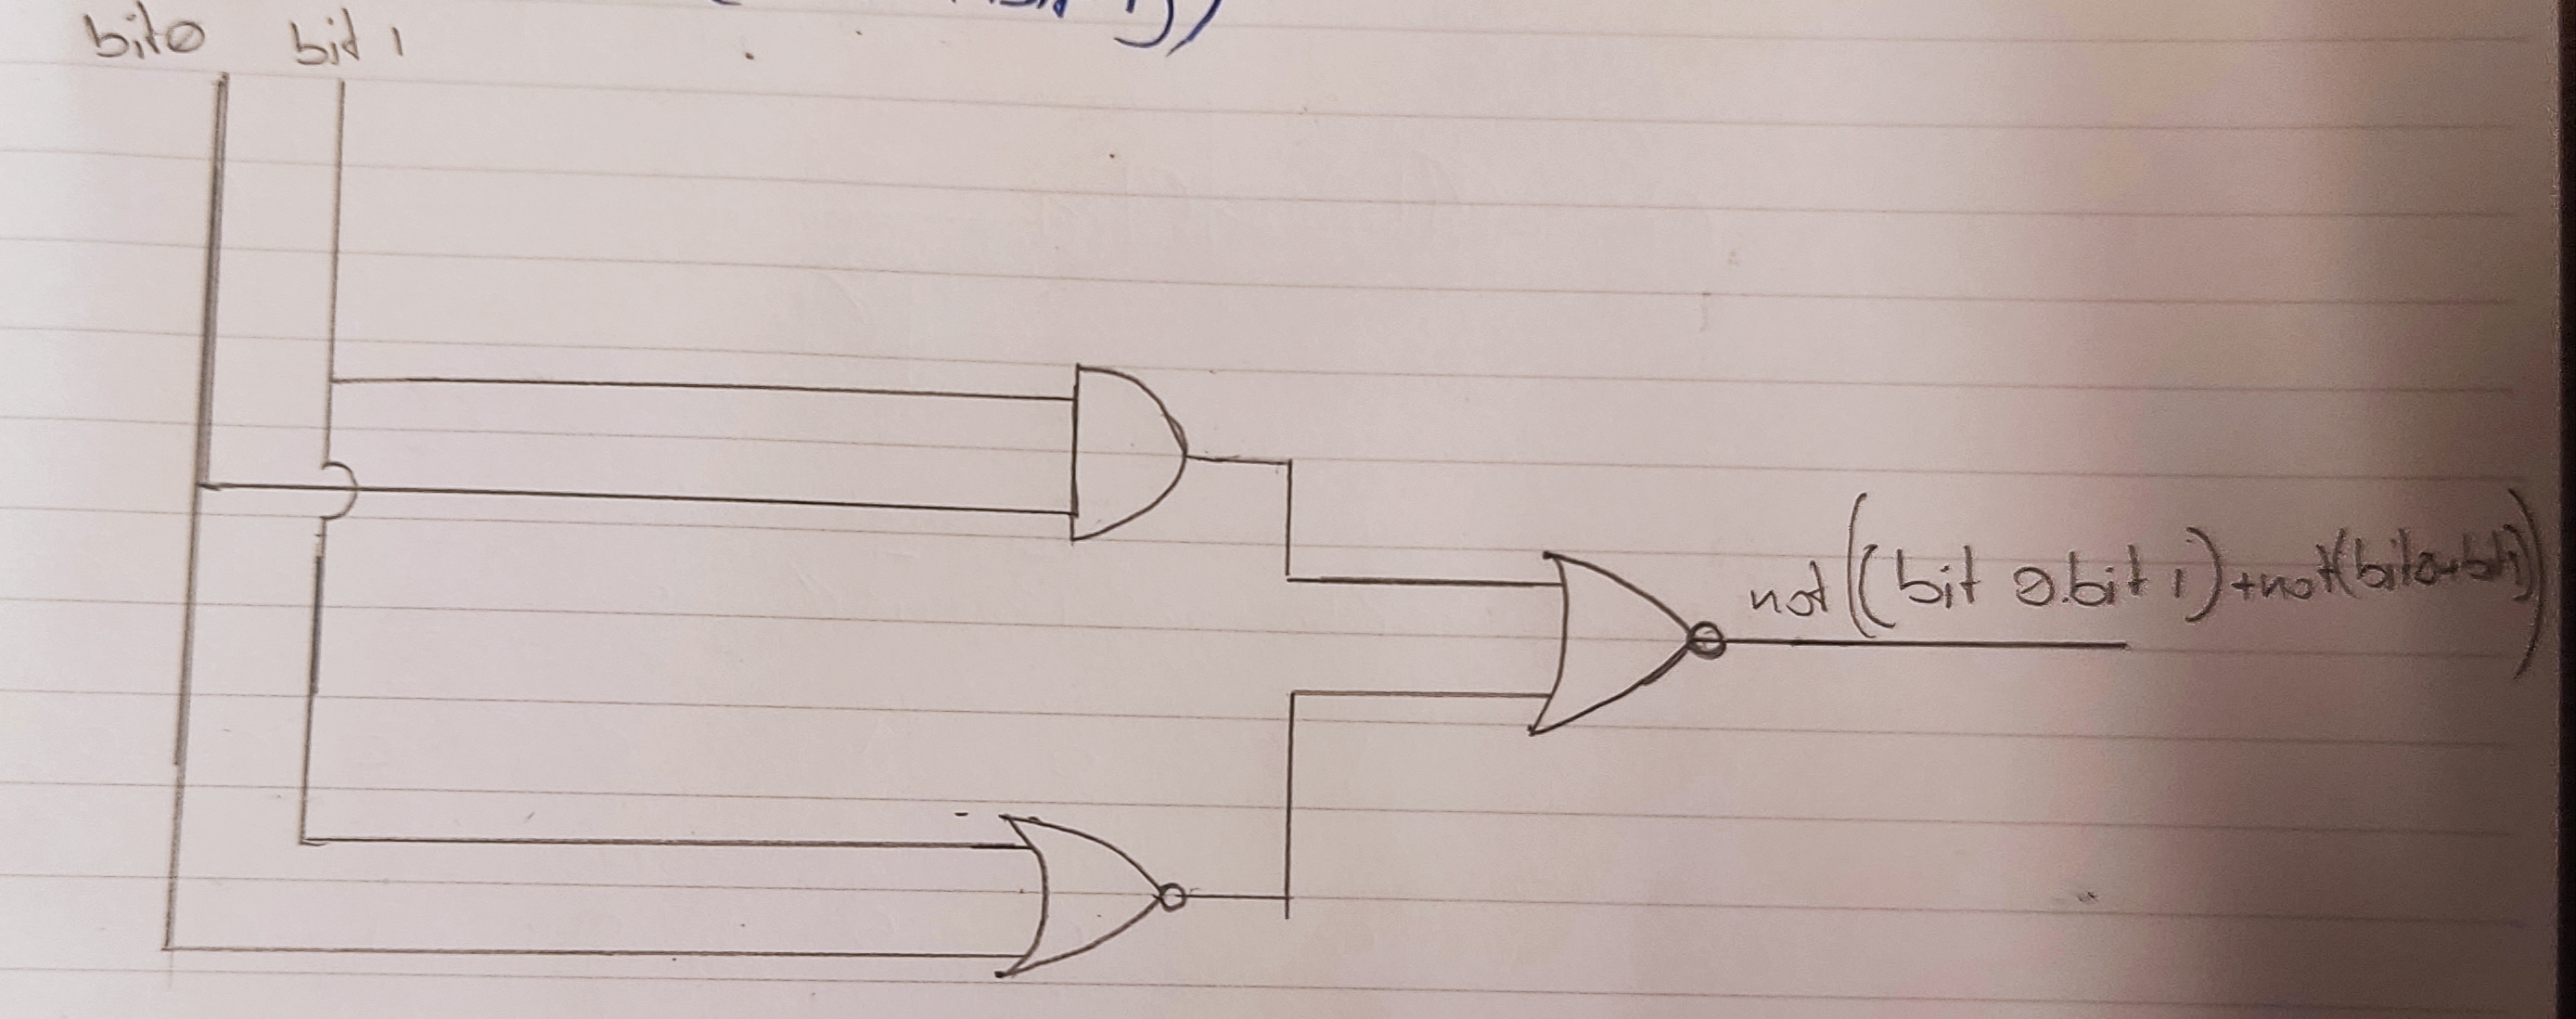 bit 1))
bit0 bit 1
not((bit 0.bit 1)+not(bit0+bit1))